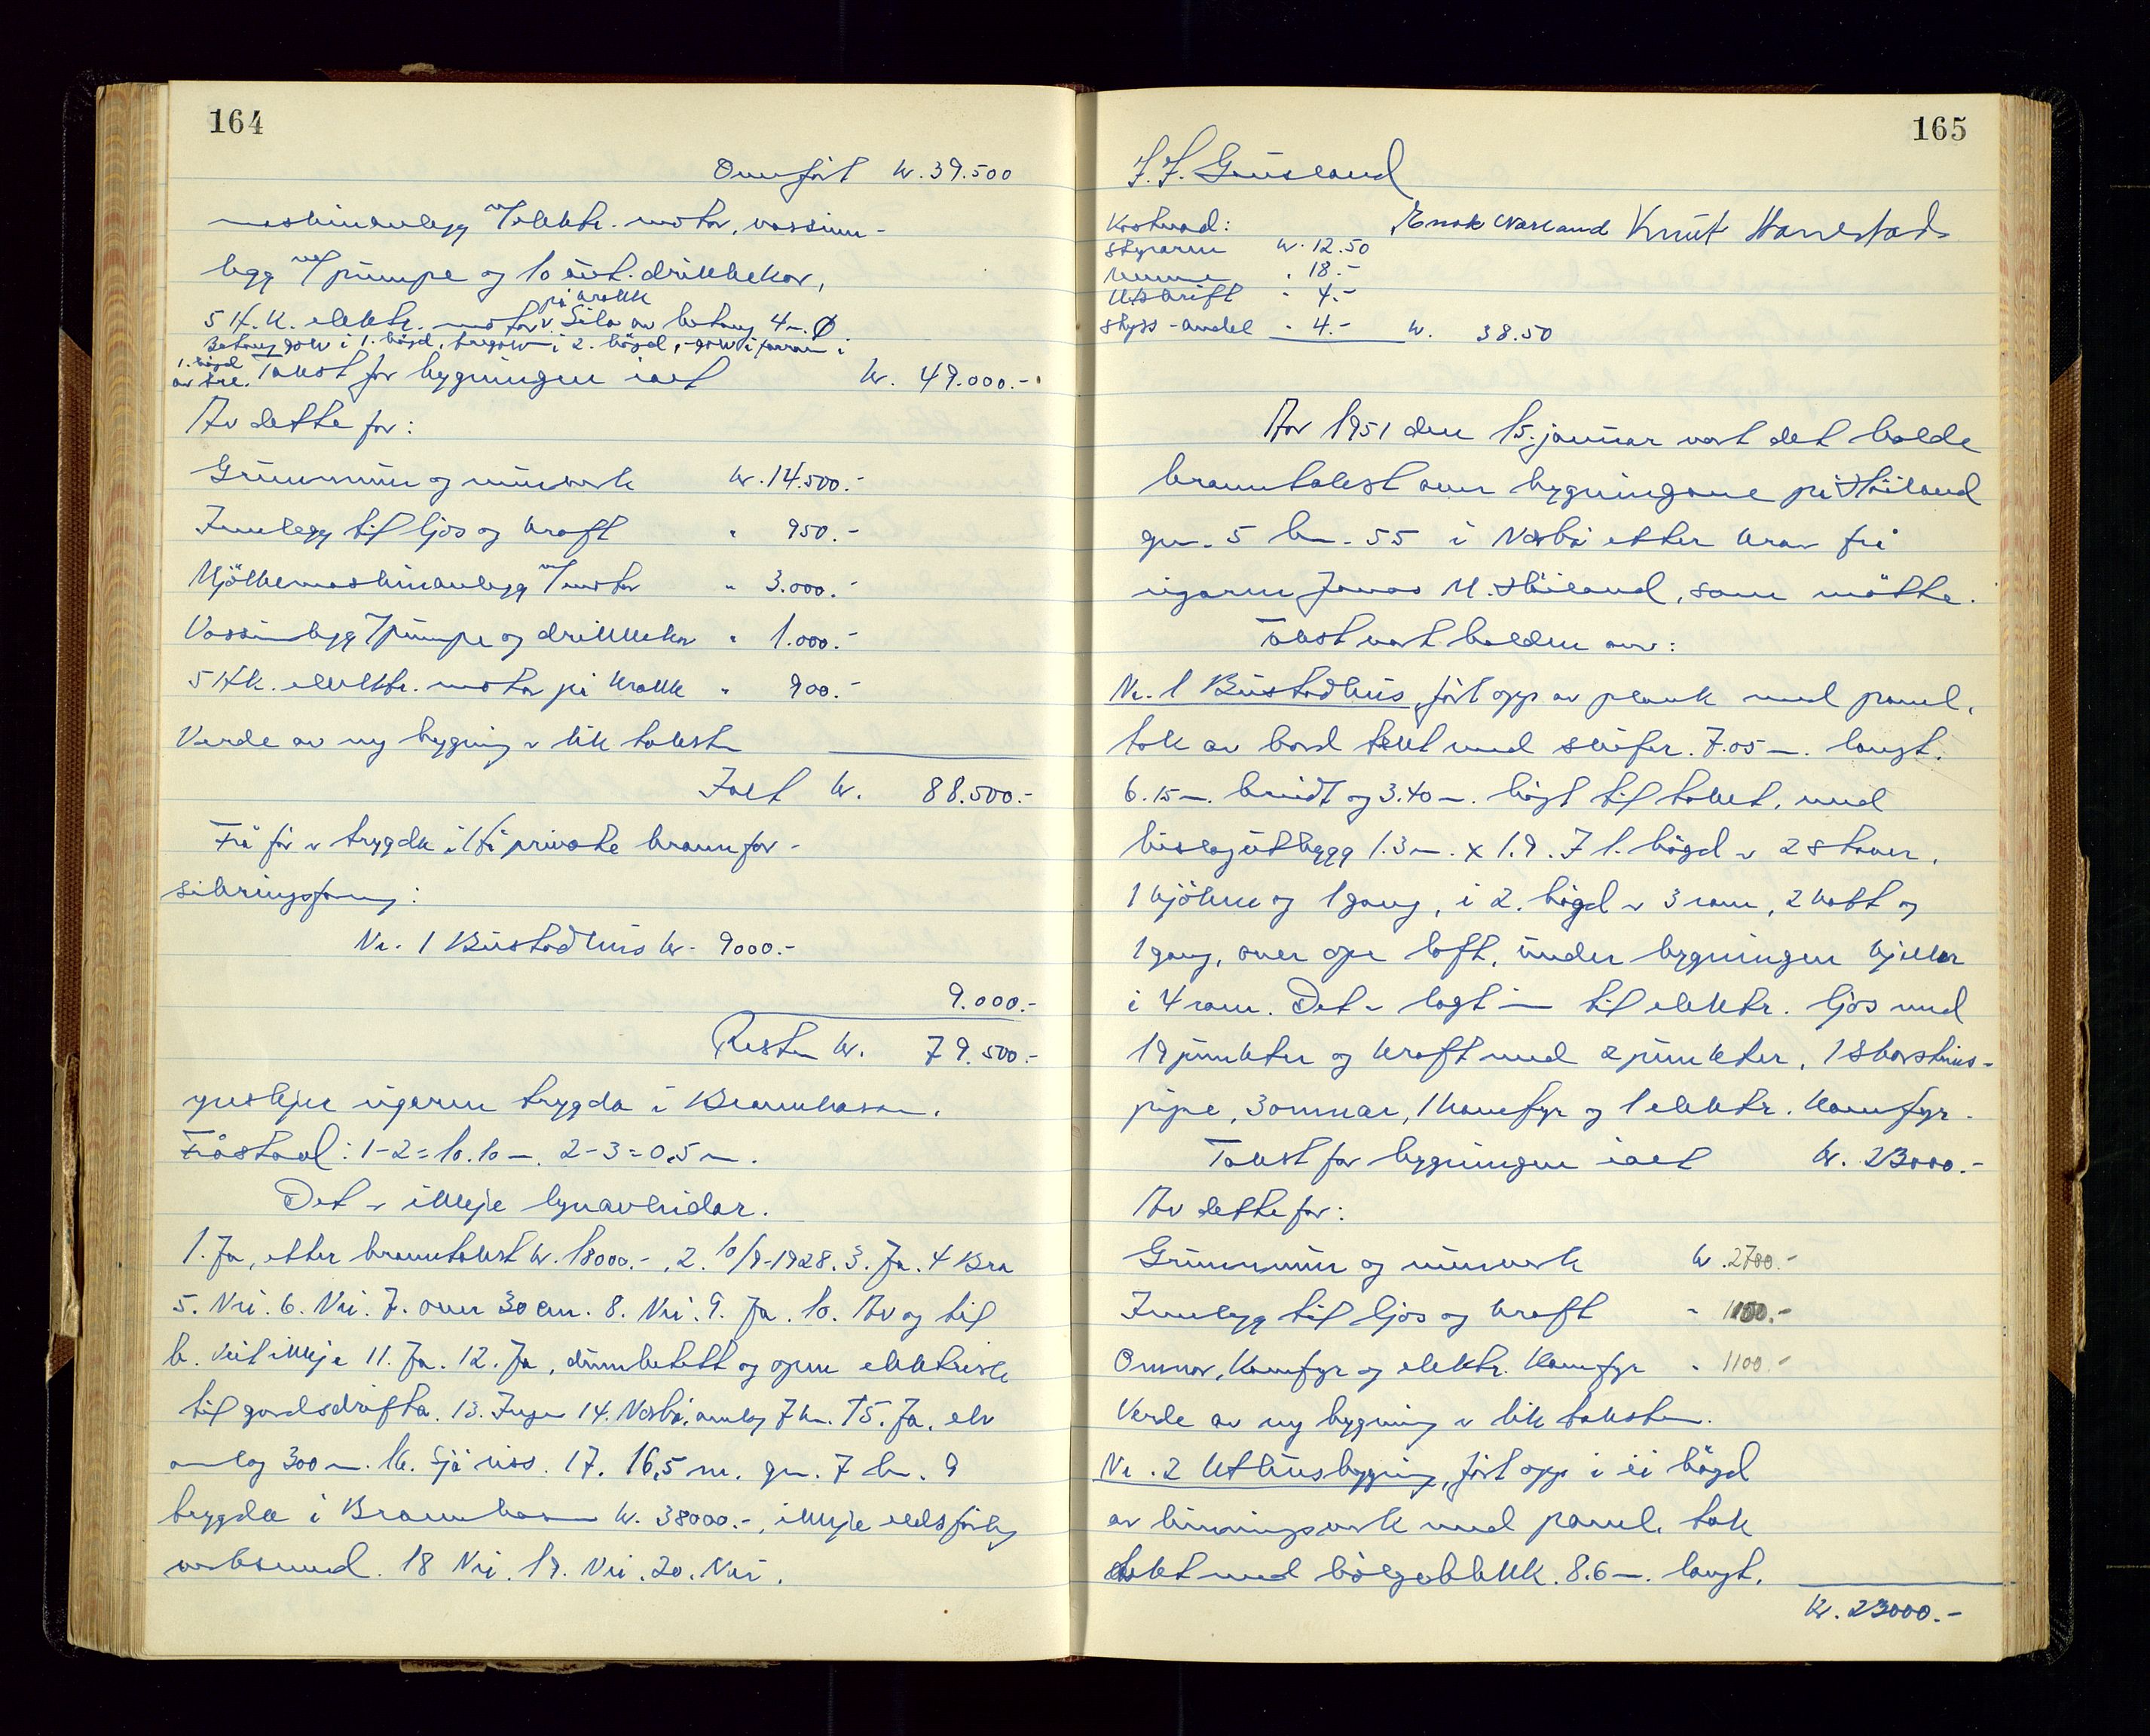 164
Overført kr. 39.500
maskinanlegg m/elektr. motor, vassinn-
legg m/pumpe og 10 aut. drikkekar,
på krakk
5 H.K. elektr. motor. Silo av betong 4 m. Ø
Betonggolv i 1. høgd, tregolv i 2. høgd, golv i
1. høgd
av tre. Takst for bygningen ialt kr. 49.000.-
Av dette for:
Grunnmur og murverk kr. 14.500.-
Innlegg til ljos og kraft " 950.-
Mjølkemaskinanlegg m/motor " 3.000.-
Vassinnlegg m/pumpe og drikkekar " 1.000.-
5 H.k. elektr. motor på krakk " 900.-
Verde av ny bygning er lik taksten
Ialt kr. 88.500.-
Frå før er trygda i/frå private brannfor-
sikringsforeng:
Nr. 1 Bustadhus kr. 9000.-
9.000.-
Resten kr. 79.500.-
ynskjer eigaren trygda i Brannkassen.
Fråstand: 1-2 = 10.10 m. 2-3 = 0,5 m.
Det er ikkje lynavleidar.
1. Ja, etter branntakst kr. 18000.-, 2. 10/9-1928. 3. Ja. 4 Bra
5. Nei. 6. Nei. 7. over 30 cm. 8. Nei. 9. Ja. 10. Av og til
b. Veit ikkje 11. Ja. 12. Ja, dunnbetett og open elektrisk
til gardsdrifta. 13. Ingen 14. Nærbø, omlag 7 km. 15. Ja, elv
omlag 300 m. 16. Sjå riss. 17. 16,5 m. gnr. 7 bnr. 9
trygda i Brannkassen kr. 38000.-, ikkje eldsfårleg
verksemd. 18 Nei. 19. Nei. 20. Nei.
165
J. J. Grusland
Kostnad: Enok Nærland Knut Hanestad
Styraren kr. 12.50
Menne " 18.-
Utskrift " 4.-
Skyss-andel " 4.- kr. 38.50
År 1951 den 15. januar vart det halde
branntakst over bygningane på Høiland
gnr. 5 bnr. 55 i Nærbø etter krav frå
eigaren Jonas M. Høiland, som møtte.
Takst vart halden over:
Nr. 1 Bustadhus, ført opp av plank med panel,
tak av bord tekt med skifer. 7.05 m. langt,
6.15 m. breidt og 3.40 m. høgt til taket, med
bislagutbygg 1.3 m. x 1.9. I 1. høgd er 2 stover,
1 kjøken og 1 gang, i 2. høgd er 3 rom, 2 kott og
1 gang, over ope loft, under bygningen kjellar
i 4 rom. Det er lagt inn til elektr. ljos med
19 punkter og kraft med 2 punkter, 1 skorsteins-
pipe, 3 omnar, 1 komfyr og 1 elektr. komfyr.
Takst for bygningen ialt kr. 23000.-
Av dette for:
Grunnmur og murverk kr. 2700.-
Innlegg til ljos og kraft " 1100.-
Omnar, komfyr og elektr. komfyr " 1100.-
Verde av ny bygning er lik taksten.
Nr. 2 Uthusbygning, ført opp i ei høgd
av bindingsverk med panel, tak
tekt med bølgeblikk. 8.6 m. langt,
kr. 23000.-